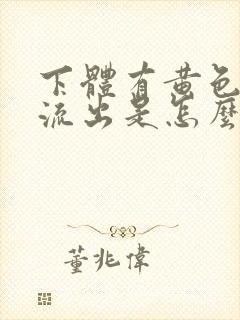 下體有黃色
流出是怎麼
董兆偉